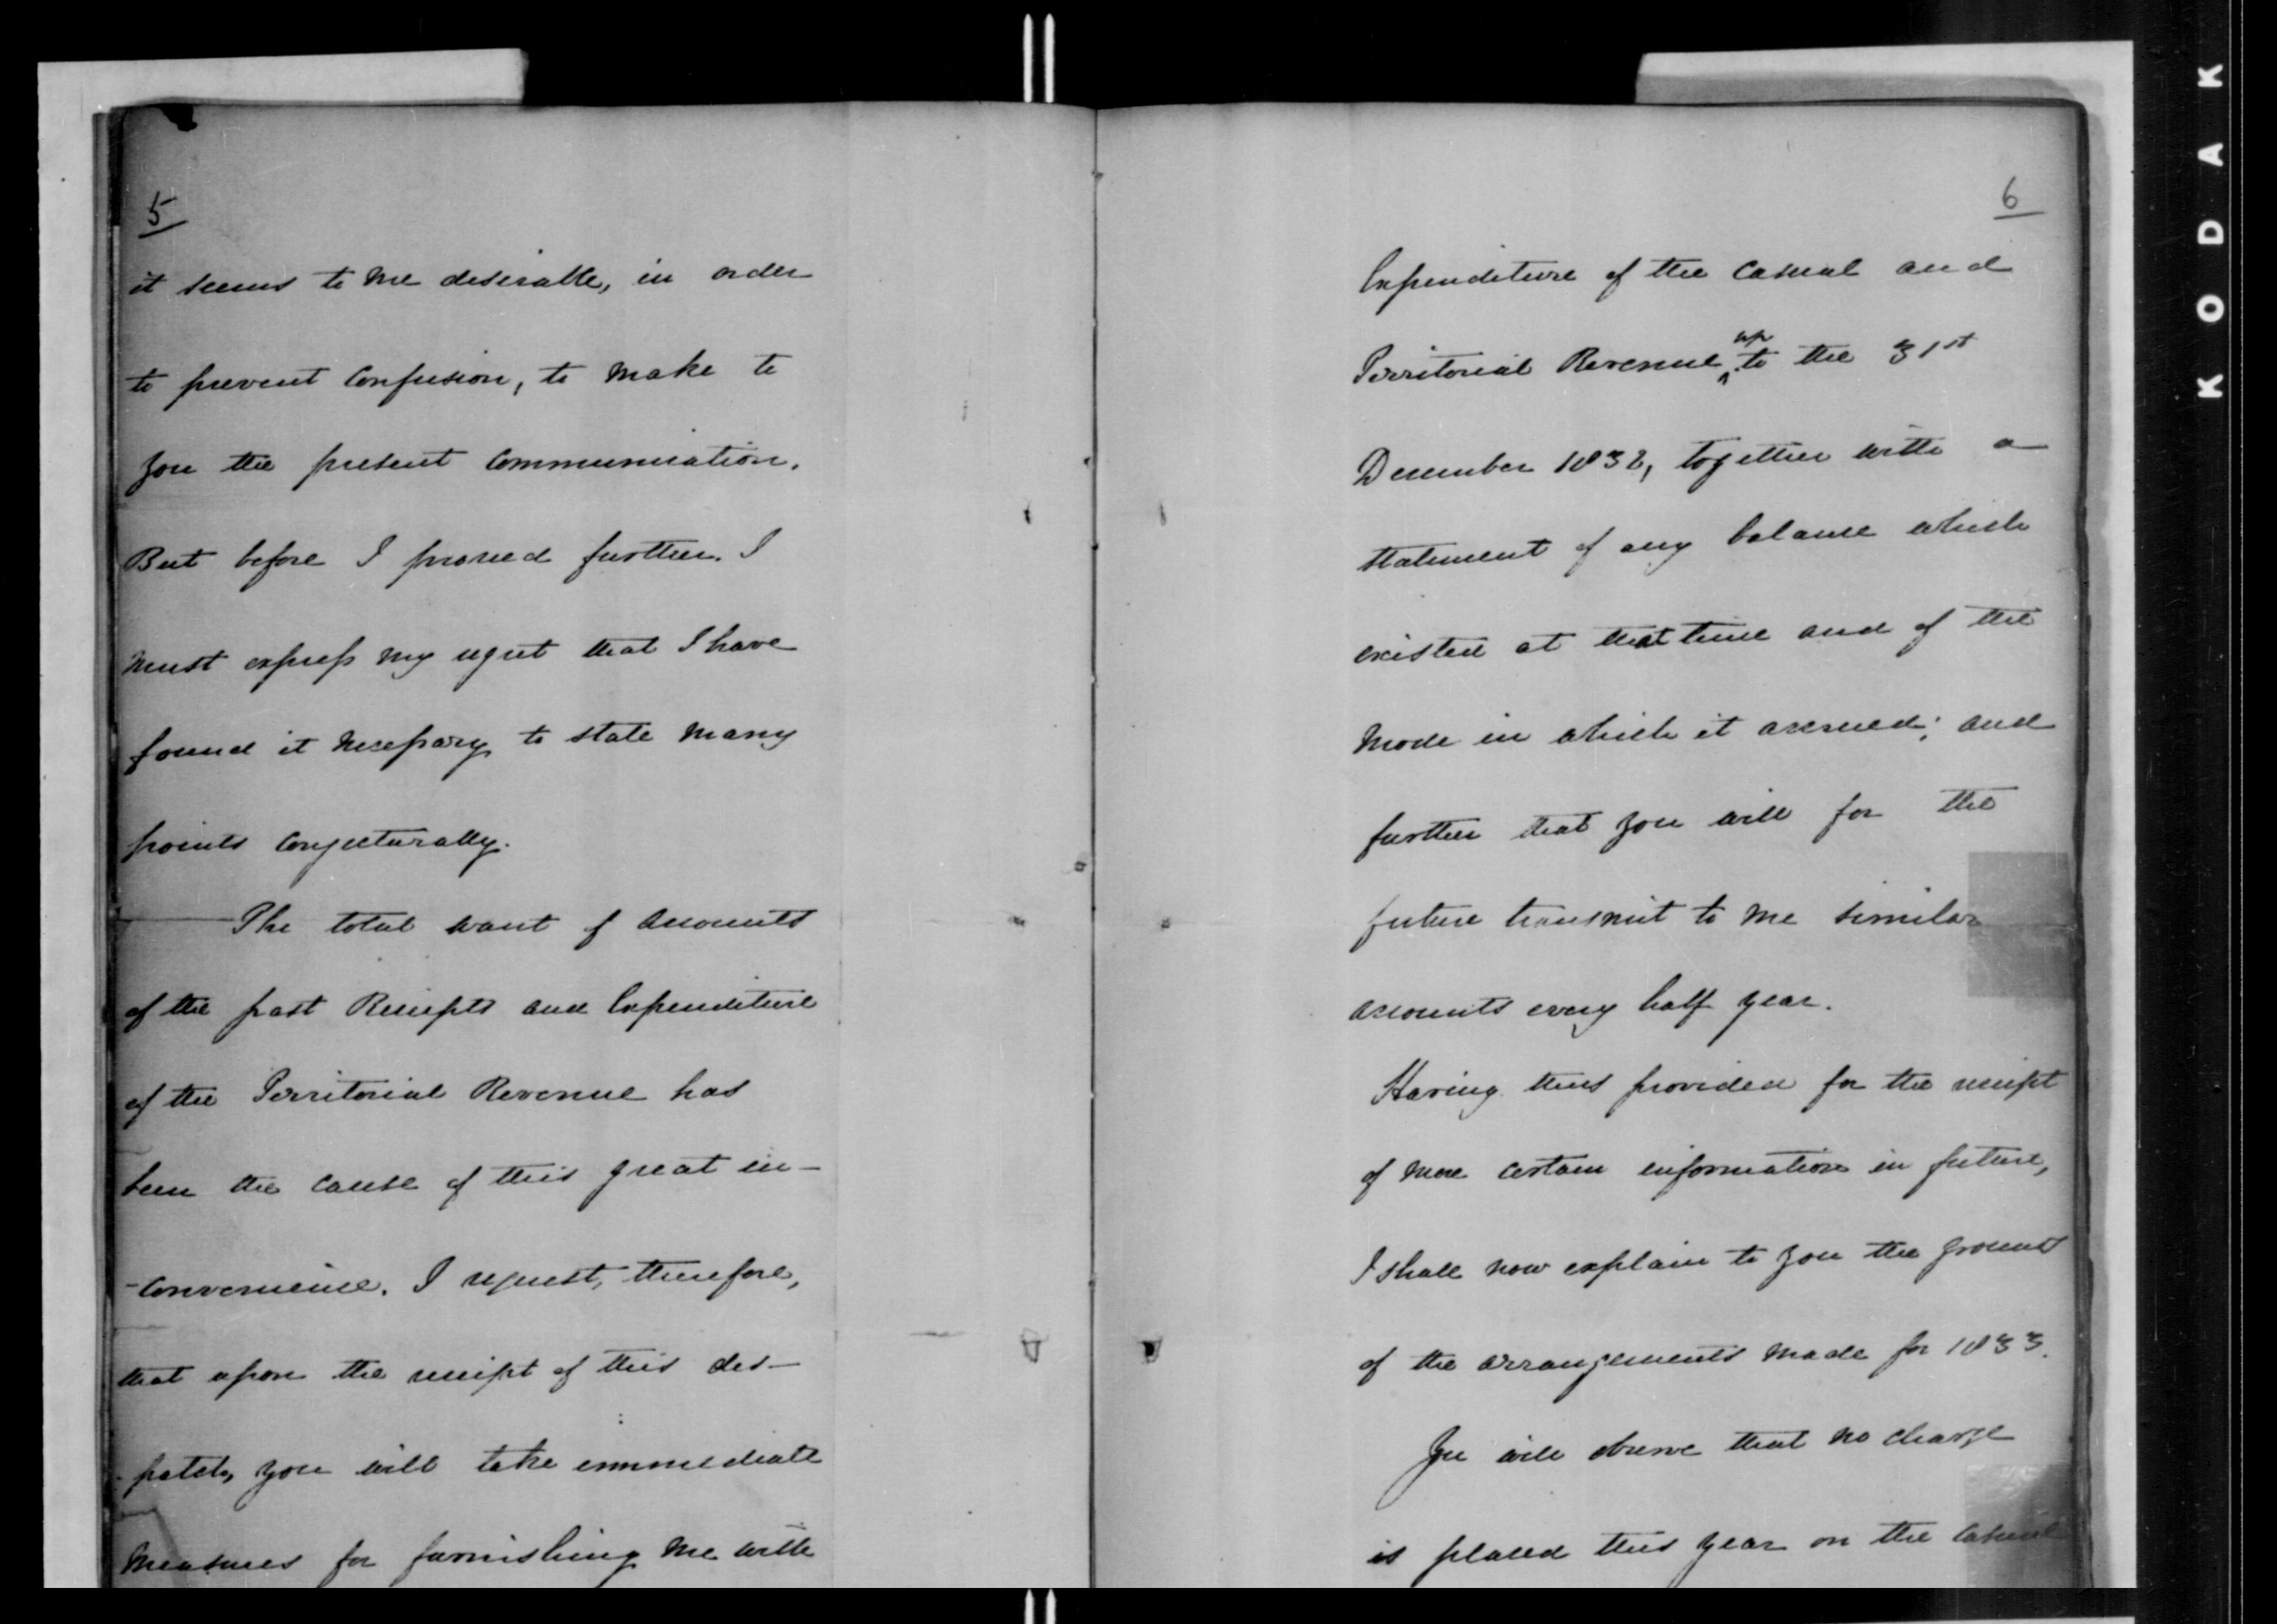 5
it seems to me desirable, in order
to prevent confusion, to make to
you the present communication.
But before I proceed further. I
must express my regret that I have
found it necessary to state many
points conjecturally.
The total want of accounts
of the past Receipts and Expenditure
of the Territorial Revenue has
been the cause of this great in-
-convenience. I request, therefore,
that upon the receipt of this des-
-patch, you will take immediate
measures for furnishing me with
6
Expenditure of the Casual and
Territorial Revenue up to the 31st
December 1832, together with a
statement of any balance which
existed at that time and of the
mode in which it accrued; and
further that you will for the
future transmit to me similar
accounts every half year.
Having thus provided for the receipt
of more certain information in future,
I shall now explain to you the grounds
of the arrangements made for 1833.
You will observe that no charge
is placed this year on the Casual
KODAK